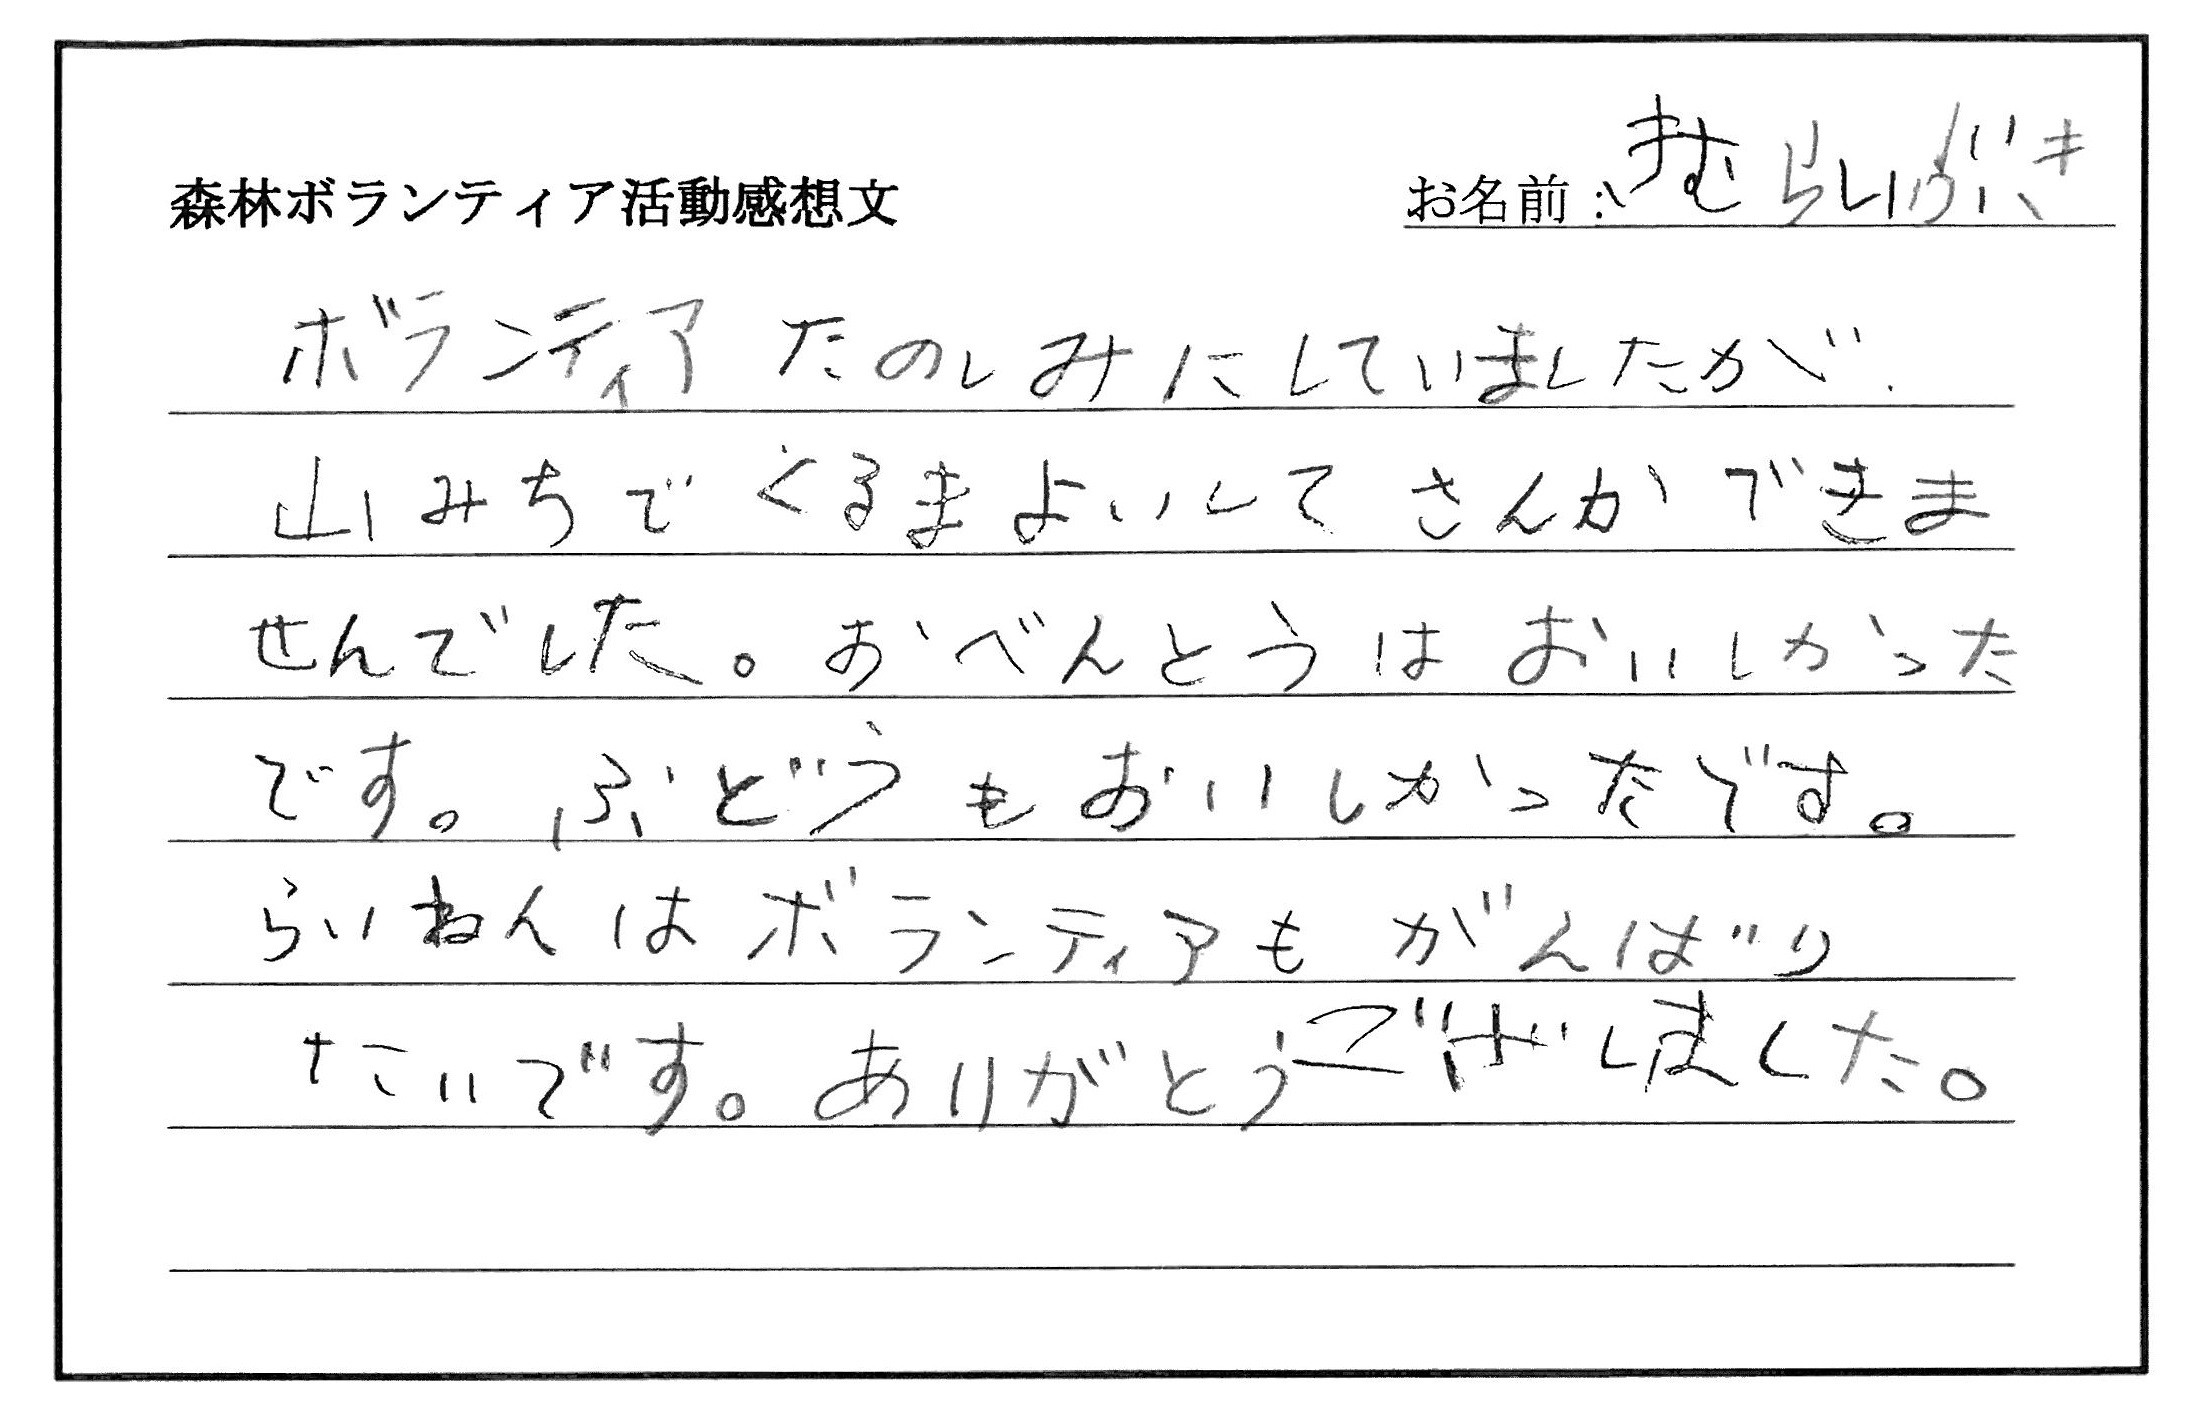 森林ボランティア活動感想文
お名前：きむらいぶき
ボランティアたのしみにしていましたが、
山みちでくるまよいしてさんかできま
せんでした。おべんとうはおいしかった
です。ぶどうもおいしかったです。
らいねんはボランティアもがんばり
たいです。ありがとうござしました。